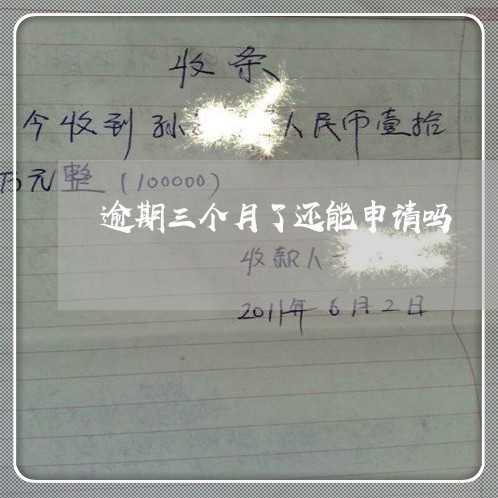 收条
今收到孙 人民币壹拾
万元整（100000）
逾期三个月了还能申请吗
收款人
2011年6月2日